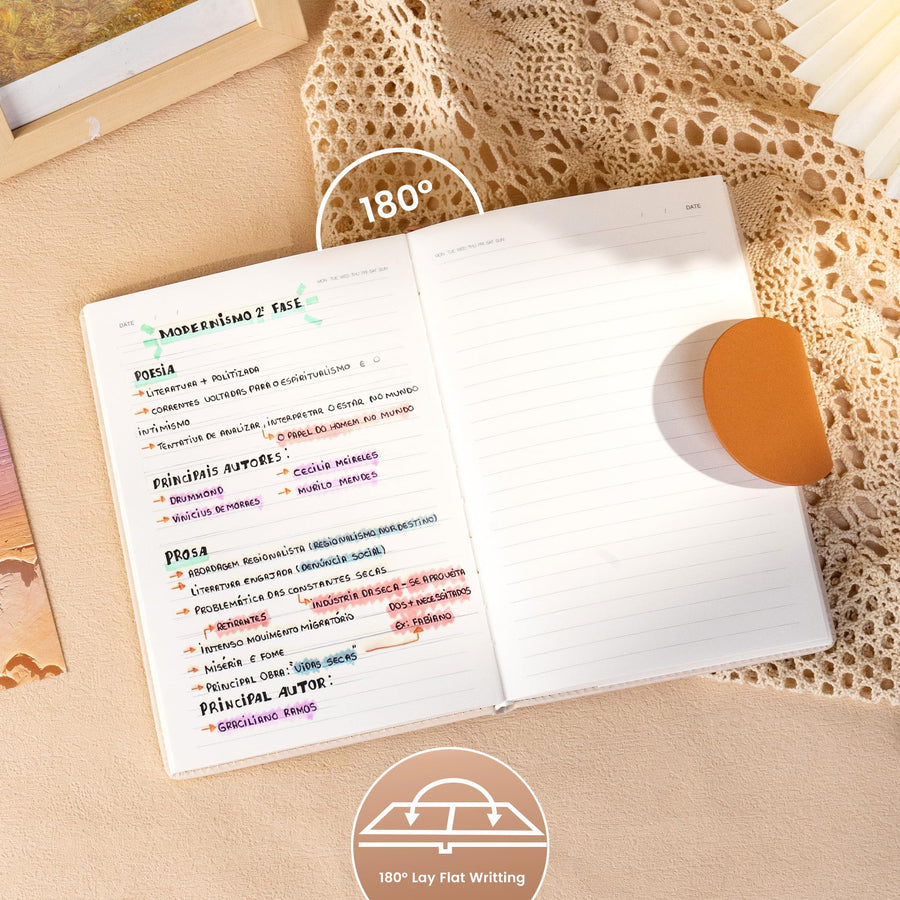 180°
DATE / /
MON TUE WED THU FRI SAT SUN
MODERNISMO 2ª FASE
POESIA
→ LITERATURA + POLITIZADA
→ CORRENTES VOLTADAS PARA O ESPIRITUALISMO E O
INTIMISMO
→ TENTATIVA DE ANALIZAR, INTERPRETAR O ESTAR NO MUNDO
↳ O PAPEL DO HOMEM NO MUNDO
PRINCIPAIS AUTORES:
→ DRUMMOND → CECILIA MEIRELES
→ VINICIUS DE MORAES → MURILO MENDES
PROSA
→ ABORDAGEM REGIONALISTA (REGIONALISMO NORDESTINO)
→ LITERATURA ENGAJADA (DENÚNCIA SOCIAL)
→ PROBLEMÁTICA DAS CONSTANTES SECAS
↳ INDÚSTRIA DA SECA - SE APROVEITA
DOS + NECESSITADOS
EX: FABIANO
RETIRANTES
→ INTENSO MOVIMENTO MIGRATÓRIO
→ MISÉRIA E FOME
→ PRINCIPAL OBRA: "VIDAS SECAS"
PRINCIPAL AUTOR:
→ GRACILIANO RAMOS
MON TUE WED THU FRI SAT SUN
/ / DATE
180° Lay Flat Writting